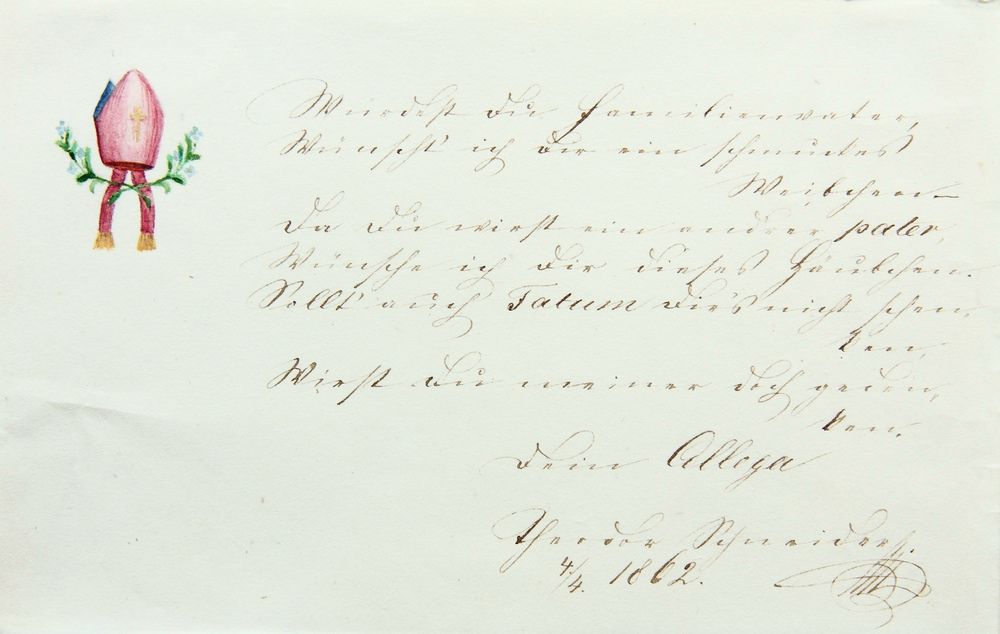 Würdest Du Familienvater,
Wünscht' ich Dir ein schmuckes
Weibchen –
Da Du wirst ein andrer pater,
Wünsche ich Dir dieses Häubchen.
Sollt' auch Fatum Dir's nicht schen-
ken,
Wirst Du meiner doch geden-
ken.
Dein Collega
Theodor Schneider
4/4. 1862.